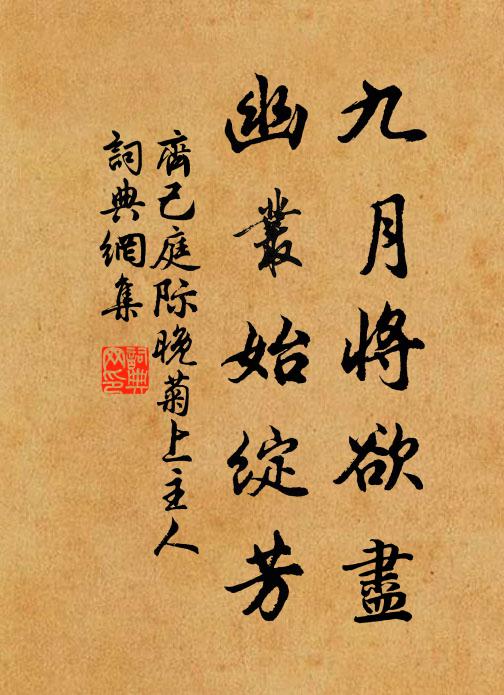 九月将欲盡
幽叢始綻芳
齊己庭际晚菊上主人
詞典網集
詞典
网印